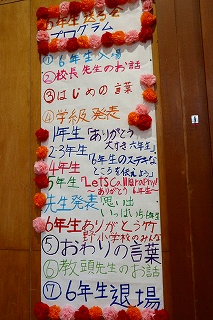 6年生送る会
プログラム
①6年生入場
②校長先生のお話
③はじめの言葉
④学級発表
1年生「ありがとう
大すき六年生」
2・3年生
「6年生のステキな
4年生
ところを伝えよう」
5年生「Let's Calligraphy!
～ありがとう6年生～
先生発表「思い出
いっぱい6年生
6年生ありがとう竹
野小学校のみんな
⑤おわりの言葉
⑥教頭先生のお話
⑦6年生退場